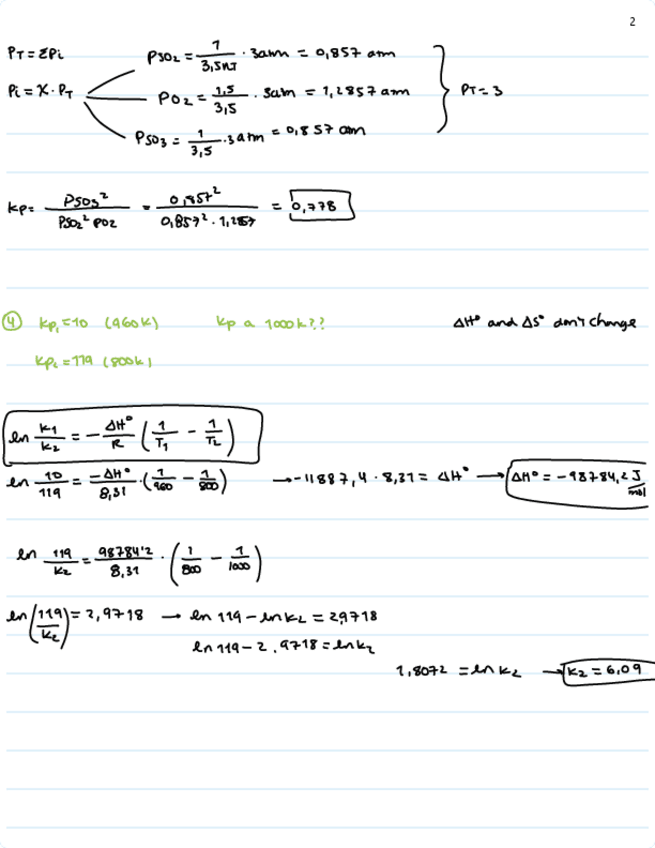 2
PT = ΣPi
Pi = X · PT
PSO2 = 1/3,5nT · 3atm = 0,857 atm
PO2 = 1,5/3,5 · 3atm = 1,2857 atm
PSO3 = 1/3,5 · 3atm = 0,857 atm
PT = 3
Kp = PSO3²/PSO2² PO2 = 0,857²/0,857² · 1,2857 = 0,778
④ Kp1 = 10 (960K) Kp a 1000K?? ΔH° and ΔS° don't change
Kp2 = 119 (800K)
ln K1/K2 = -ΔH°/R (1/T1 - 1/T2)
ln 10/119 = -ΔH°/8,31 · (1/960 - 1/800) → -11887,4 · 8,31 = ΔH° → ΔH° = -98784,2 J/mol
ln 119/K2 = 98784'2/8,31 · (1/800 - 1/1000)
ln(119/K2) = 2,9718 → ln 119 - ln K2 = 2,9718
ln 119 - 2,9718 = ln K2
1,8072 = ln K2 → K2 = 6,09